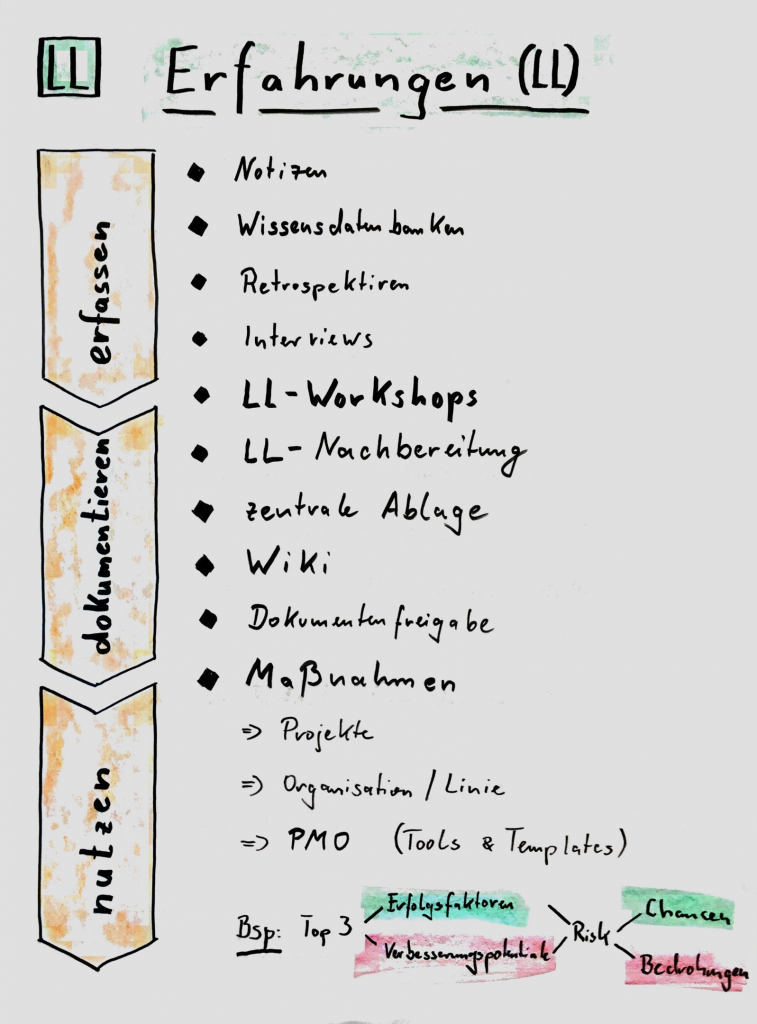 LL Erfahrungen (LL)
erfassen
◆ Notizen
◆ Wissensdatenbanken
◆ Retrospektiven
◆ Interviews
◆ LL-Workshops
dokumentieren
◆ LL-Nachbereitung
◆ zentrale Ablage
◆ Wiki
◆ Dokumentenfreigabe
nutzen
◆ Maßnahmen
=> Projekte
=> Organisation / Linie
=> PMO (Tools & Templates)
Bsp: Top 3
Erfolgsfaktoren
Verbesserungspotentiale
Risk
Chancen
Bedrohungen